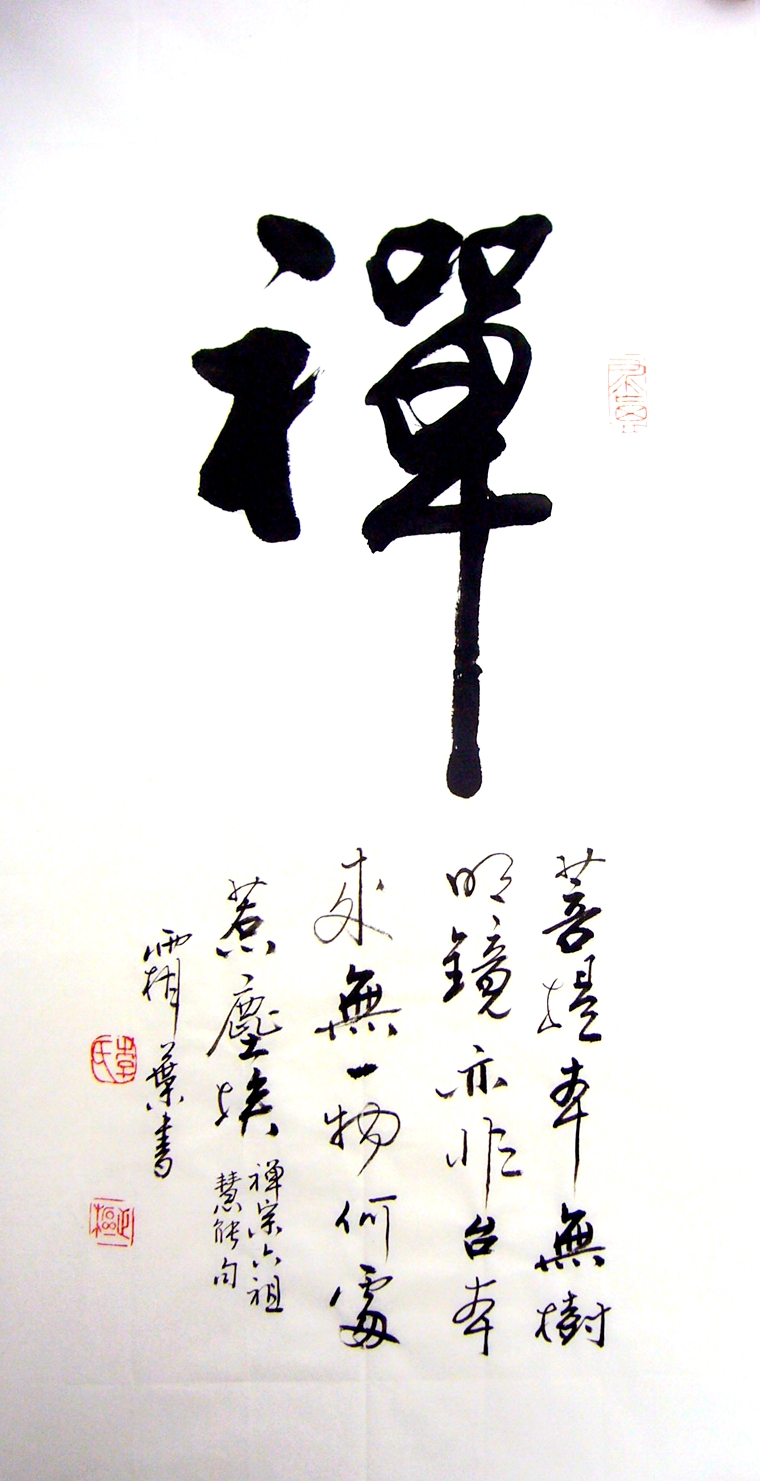 禪
菩提本無樹
明鏡亦非台本
來無一物何處
惹塵埃
禪宗六祖
慧能句
霜葉書
李氏